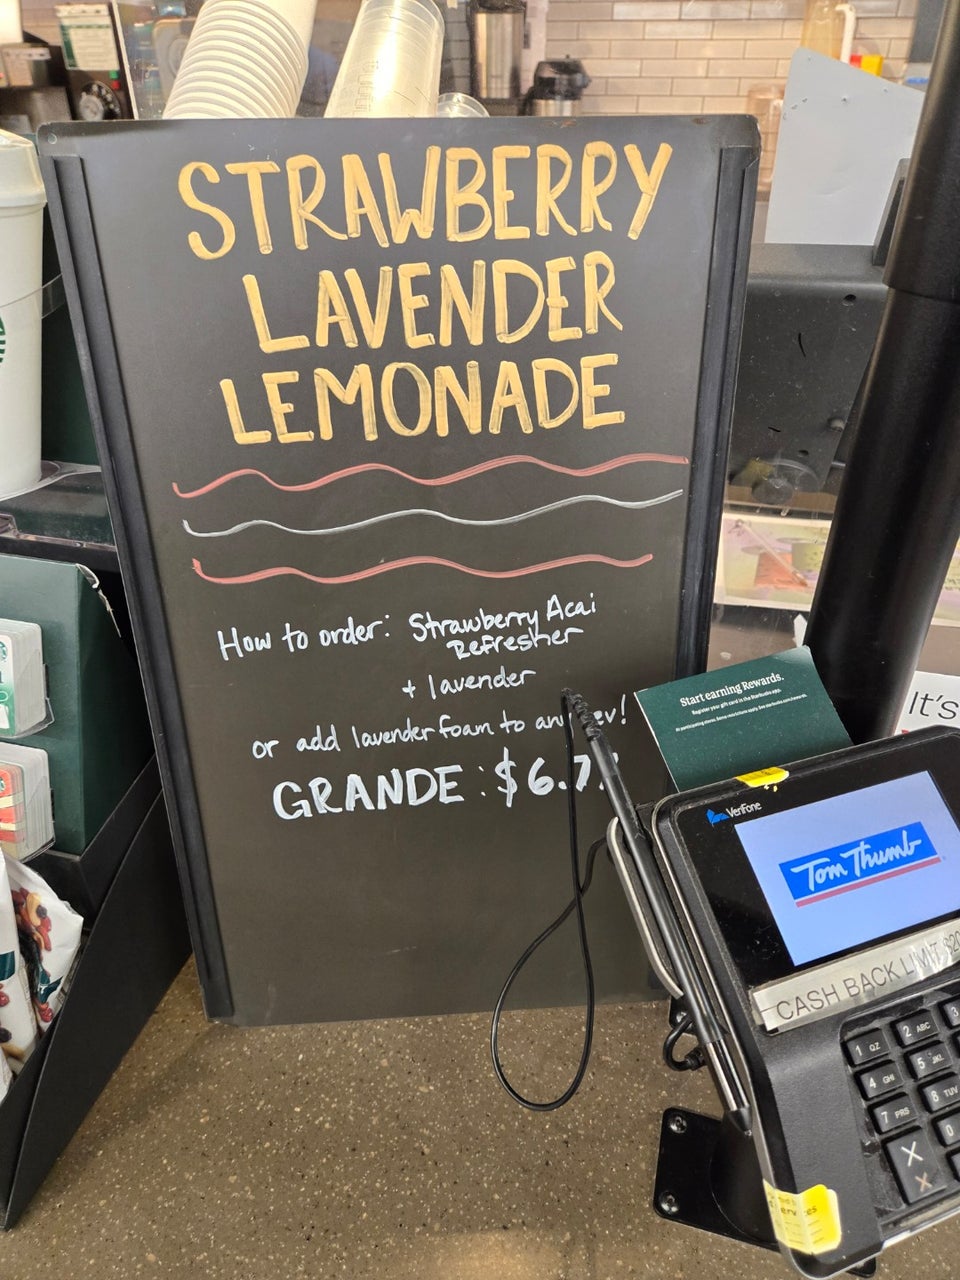 STRAWBERRY
LAVENDER
LEMONADE
How to order: Strawberry Acai
Refresher
+ lavender
or add lavender foam to any bev!
GRANDE: $6.7
Start earning Rewards.
It's
Verifone
Tom Thumb
CASH BACK LIMIT $20
1 QZ
2 ABC
3
4 GHI
5 JKL
7 PRS
8 TUV
0